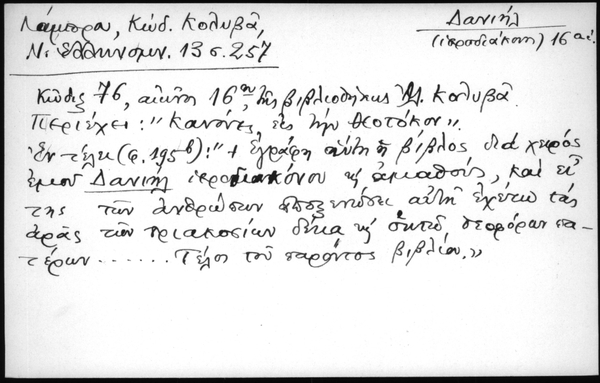 Λάμπρου, Κώδ. Κολυβᾶ,
Ν. Ἑλληνομν. 13 σ. 257
Δανιήλ
(ἱεροδιάκονος) 16 αἰ.
Κῶδιξ 76, αἰῶνος 16ου, τῆς βιβλιοθήκης Μ. Κολυβᾶ
Περιέχει: "Κανόνες εἰς τὴν Θεοτόκον".
Ἐν τέλει (φ. 195β): "+ Ἐγράφη αὕτη ἡ βίβλος διὰ χειρός
ἐμοῦ Δανιὴλ ἱεροδιακόνου κὲ ἀμαθοῦς, καὶ εἴ
της τῶν ἀνθρώπων ἀποξενώσει αὐτὴ ἐχέτω τὰς
ἀρὰς τῶν τριακοσίων δέκα κὲ ὀκτώ θεοφόρων πα-
τέρων...... Τέλος τοῦ παρόντος βιβλίου."